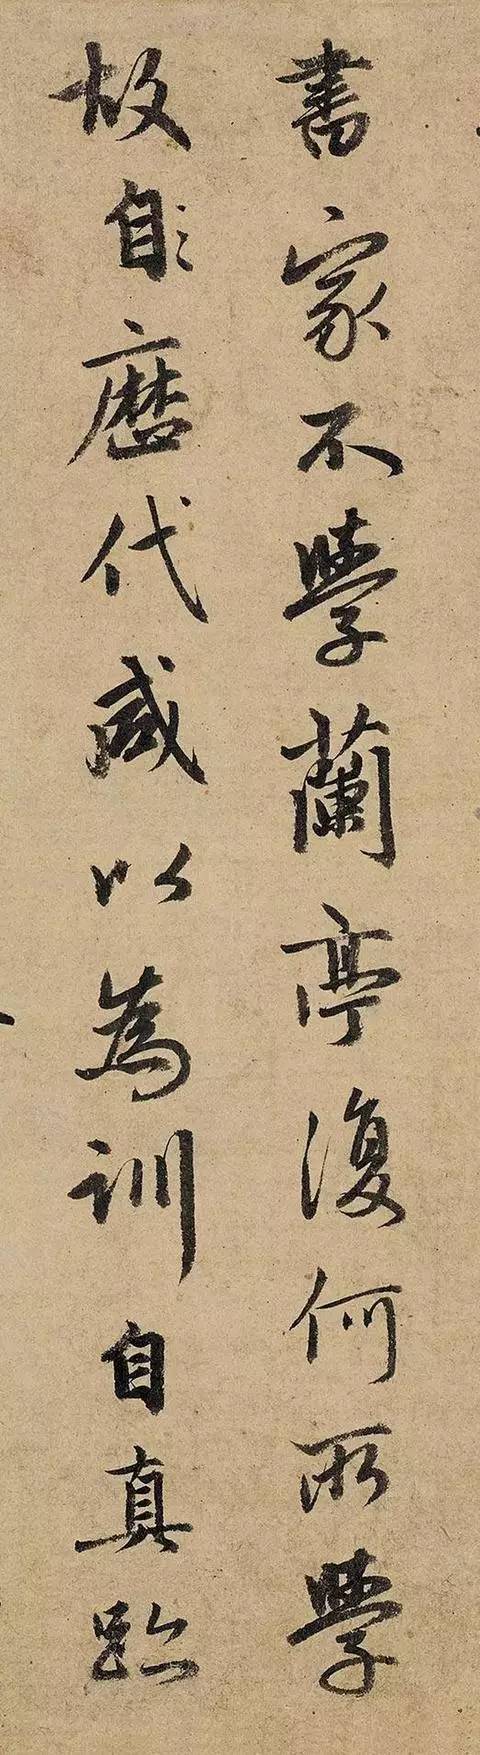 書家不學蘭亭復何所學
故自歷代咸以為訓自真跡